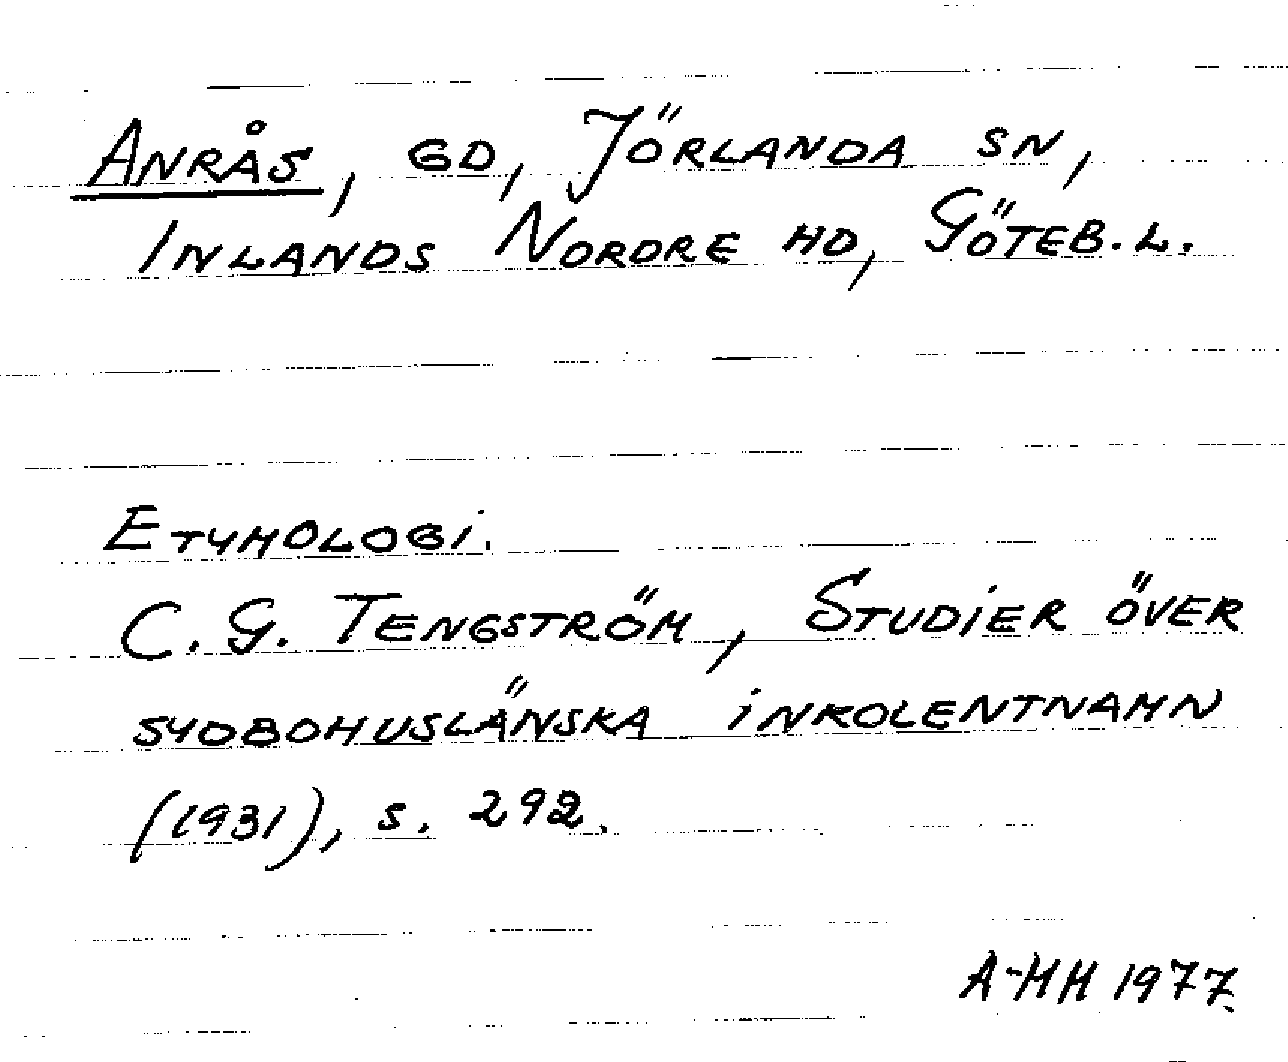 Anrås, gd, Jörlanda sn,
Inlands Nordre hd, Göteb. l.
Etymologi.
C. G. Tengström, Studier över
sydbohuslänska inkolentnamn
(1931), s. 292.
A-HH 1977.